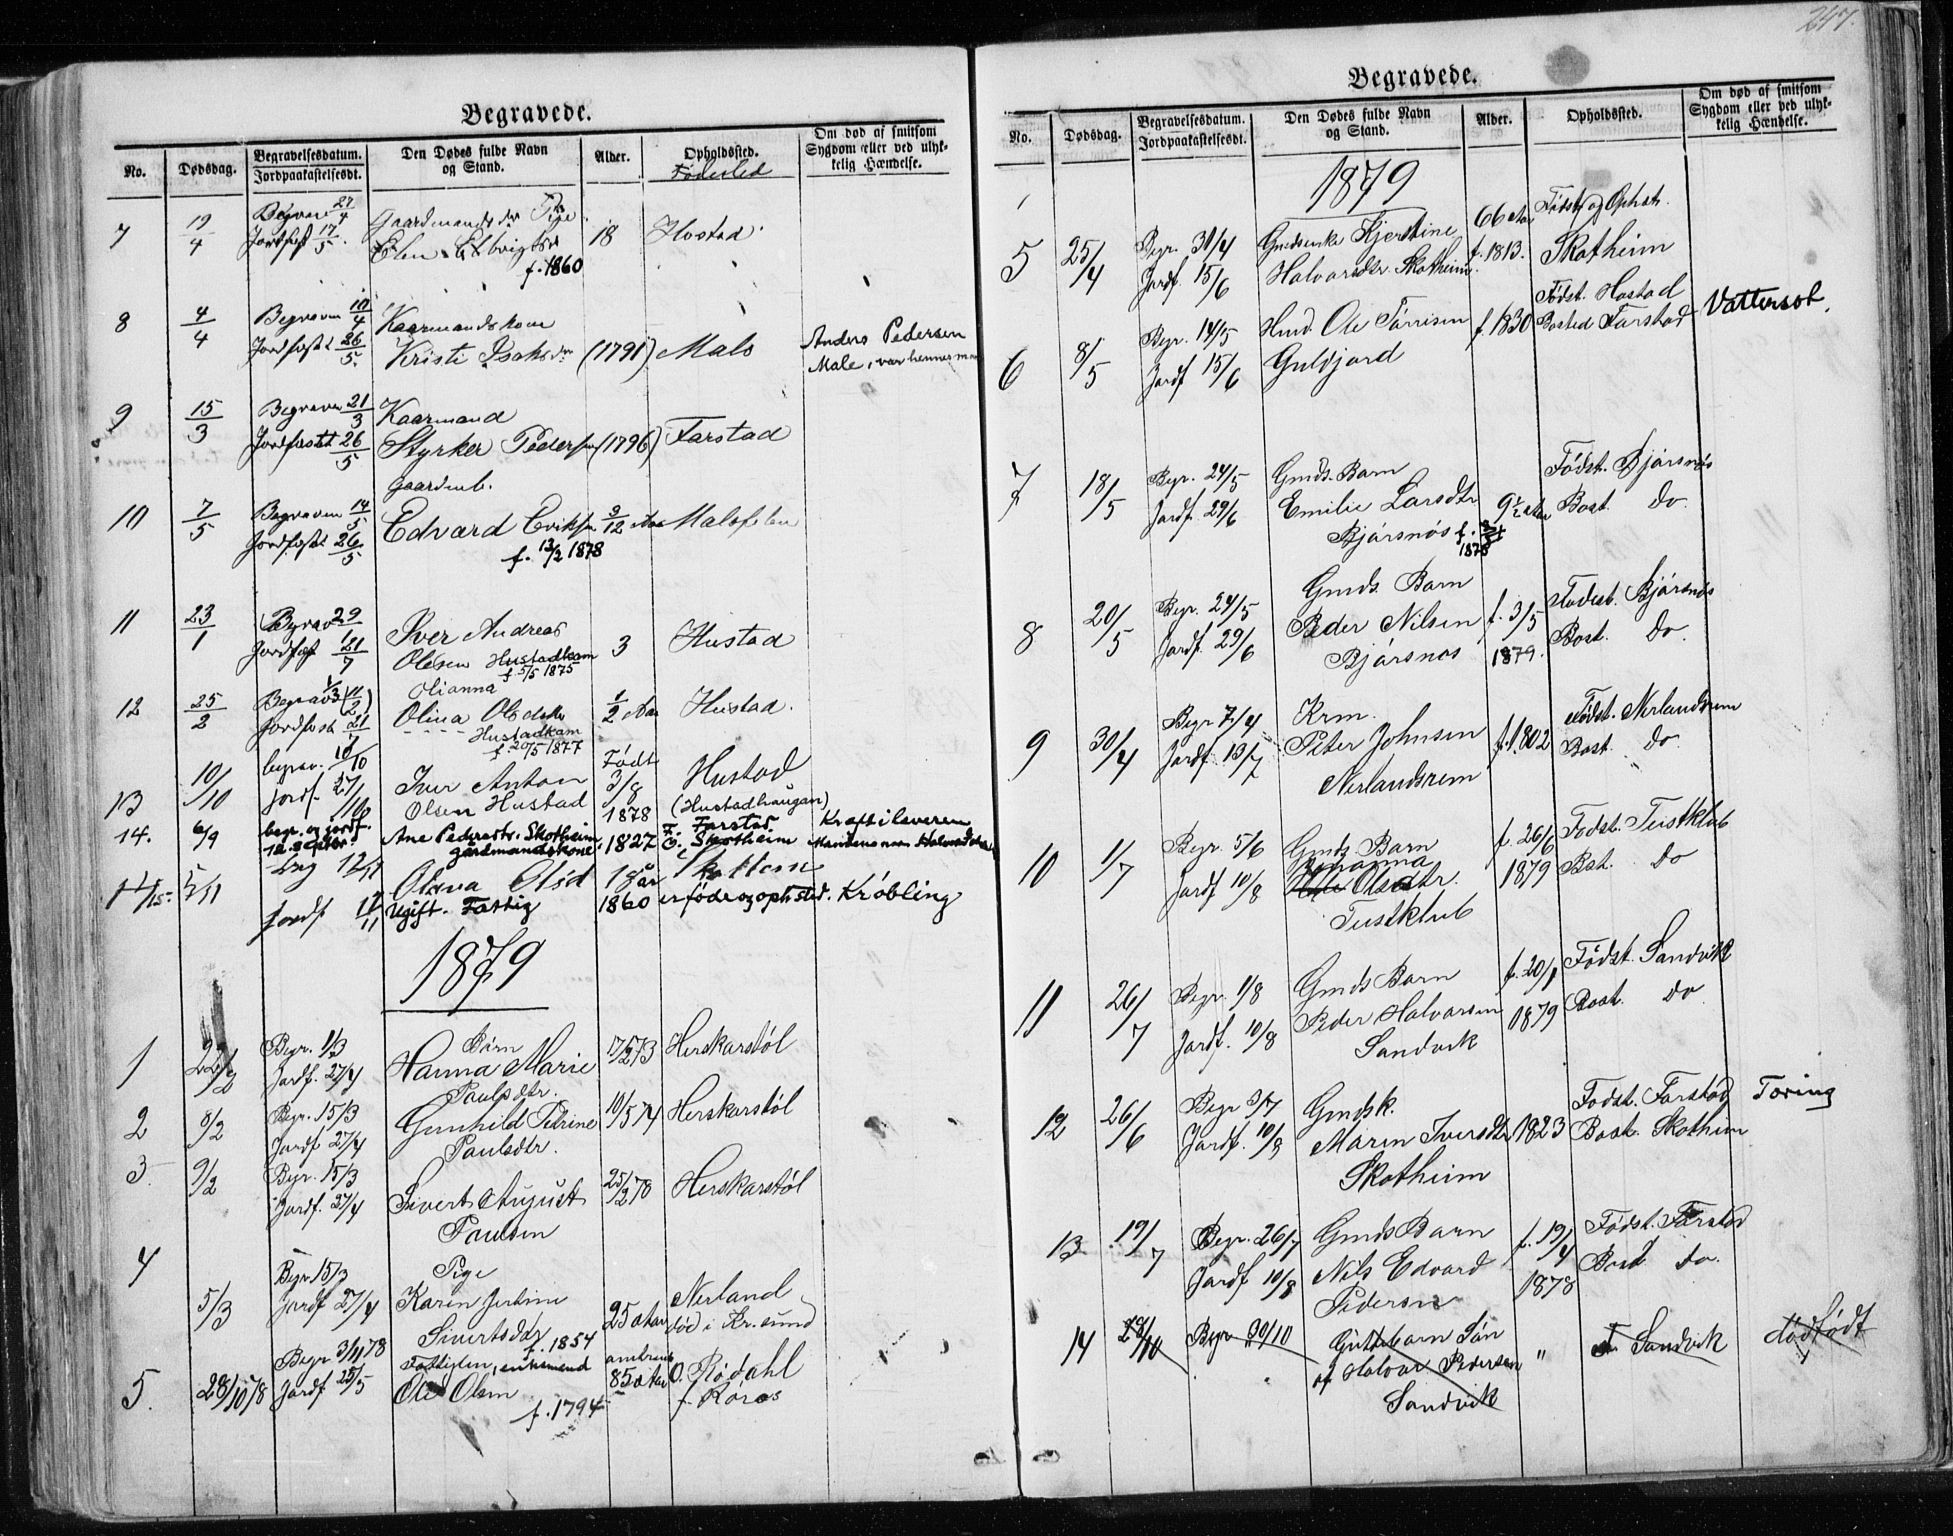 247.
Begravede.
No.
Dødsdag.
Begravelsesdatum.
Jordpaakastelsesdt.
Den Dødes fulde Navn
og Stand.
Alder.
Opholdssted.
Fødested
Om død af smitsom
Sygdom eller ved ulyk-
kelig Hændelse.
7
19/4
Begraven 27/4
Jordfæst 17/5.
Gaardmandsdtr Pige
Elen
f. 1860
18
Hustad
8
4/4
Begraven 10/4
Jordfæstet 26/5.
Kaarmandskone
Kristi Isaksdtr
(1791)
Male
Anders Pedersen
Male, var hennes man
9
15/3
Begraven 21/3
Jordfæstet 26/5
Kaarmand
Styrker Pedersen
(1796)
Farstad
10
7/5
Begraven 14/5
Jordfæstet 26/5
Gaardmb.
Edvard Eriksen
f. 13/2 1878
3/12 Aar
Malefeten
11
23/1
Begrav 29/1
Jordfæst 21/7
Iver Andreas
Olesen Hustadkam
f. 5/5 1875
3
Hustad
12
25/2
Begrav 1/3 (11/2)
Jordfæst 21/7
Olianna
Olina Olsdtr
Hustadkam
f. 20/5 1877
1/2 Aar
Hustad.
13
10/10
begrav. 10/10
jordf. 27/10
Iver Anton
Olsen Hustad
Født
3/8
1878
Hustad
(Hustadhaugan)
14.
6/9
begr. og jordf.
12. Septbr.
Ane Pedersdtr. Skotheim,
gårdmandskone,
1827
F. Farstad
O. Skotheim
Kræft i leveren
15.
Beg 12/11
jordf 17/11
Olava Olsd
Ugift. Fattig
18 år
1860
er føde og oph.sted.
Krøbling
1879
1
22/2
Begr. 1/3
Jordf. 27/4
Børn
Hanna Marie
Paulsdtr.
17/5 73
Herskarstøl
2
8/2
Begr. 15/3
Jordf 27/4
Gunhild Petrine
Paulsdtr.
10/5 74
Herskarstøl
3
9/2
Begr. 15/3
Jordf. 27/4
Sivert August
Paulsen
25/2 78
Herskarstøl
4
5/3
Begr 15/3
Jordf 27/4
Pige
Karen Jertine
Sivertsdtr
f. 1854
25 aar
Nerland
død i Kr.sund
5.
28/10 78
Begr 3/11 78
Jordf 25/5
Fattiglem, enkemand
Ole Olsen
f. 1794
omtrent
85 aar
O. Rødahl
f Røros
Begravede.
No.
Dødsdag.
Begravelsesdatum.
Jordpaakastelsesdt.
Den Dødes fulde Navn
og Stand.
Alder.
Opholdssted.
Om død af smitsom
Sygdom eller ved ulyk-
kelig Hændelse.
1879
5
25/4
Begr. 30/4
Jordf. 15/6
Gmdsenke Kjerstine
Halvardsdtr. Skotheim.
66 Aar
f. 1813.
Fødst og Ophst.
Skotheim
6
8/5
Begr. 14/5
Jordf 15/6
Hmd. Ole Tørrisen
Guldjord
f. 1830
Fødst. Hostad
Bosted Farstad
Vattersot.
7
18/5
Begr. 24/5
Jordf. 29/6
Gmds. Barn
Emilie Larsdtr
Bjørsnøs
1878
9 1/2 Aar
Fødst. Bjørsnøs
Bost. do.
8
20/5
Begr. 24/5
Jordf. 29/6
Gmds. Barn
Peder Nilsen
Bjørsnøs
f. 3/5
1879.
Fødest. Bjørsnøs
Bost. do.
9
30/4
Begr 7/4
Jordf. 13/7
Krm.
Peter Johnsen
Nerlandsrem
f. 1802
Fødst. Nerlandsrem
Bost. do.
10
1/7
Begr. 5/6
Jordf 10/8
Gmds. Barn
Johanna
Olsdtr.
Tustklub
f. 26/6
1879
Fødst. Tustklub
Bst. do
11
26/7
Begr. 1/8
Jordf. 10/8
Gmds Barn
Peder Halvorsen
Sandvik
f. 20/1
1879
Fødst. Sandvik
Bost. do
12
26/6
Begr 3/7
Jordf. 10/8
Gmdsk.
Maren Iversdtr
Skotheim
1823
Fødst. Farstad
Bost. Skotheim
Tæring
13
19/7
Begr. 26/7
Jordf 10/8
Gmds Barn
Nils Edvard
Pedersen
f. 19/4
1878
Fødst. Farstad
Bost do.
14
29/10
Begr 30/10
Guttebarn Søn
af Halvor Pedersen
Sandvik
"
F. Sandvik
dødfødt